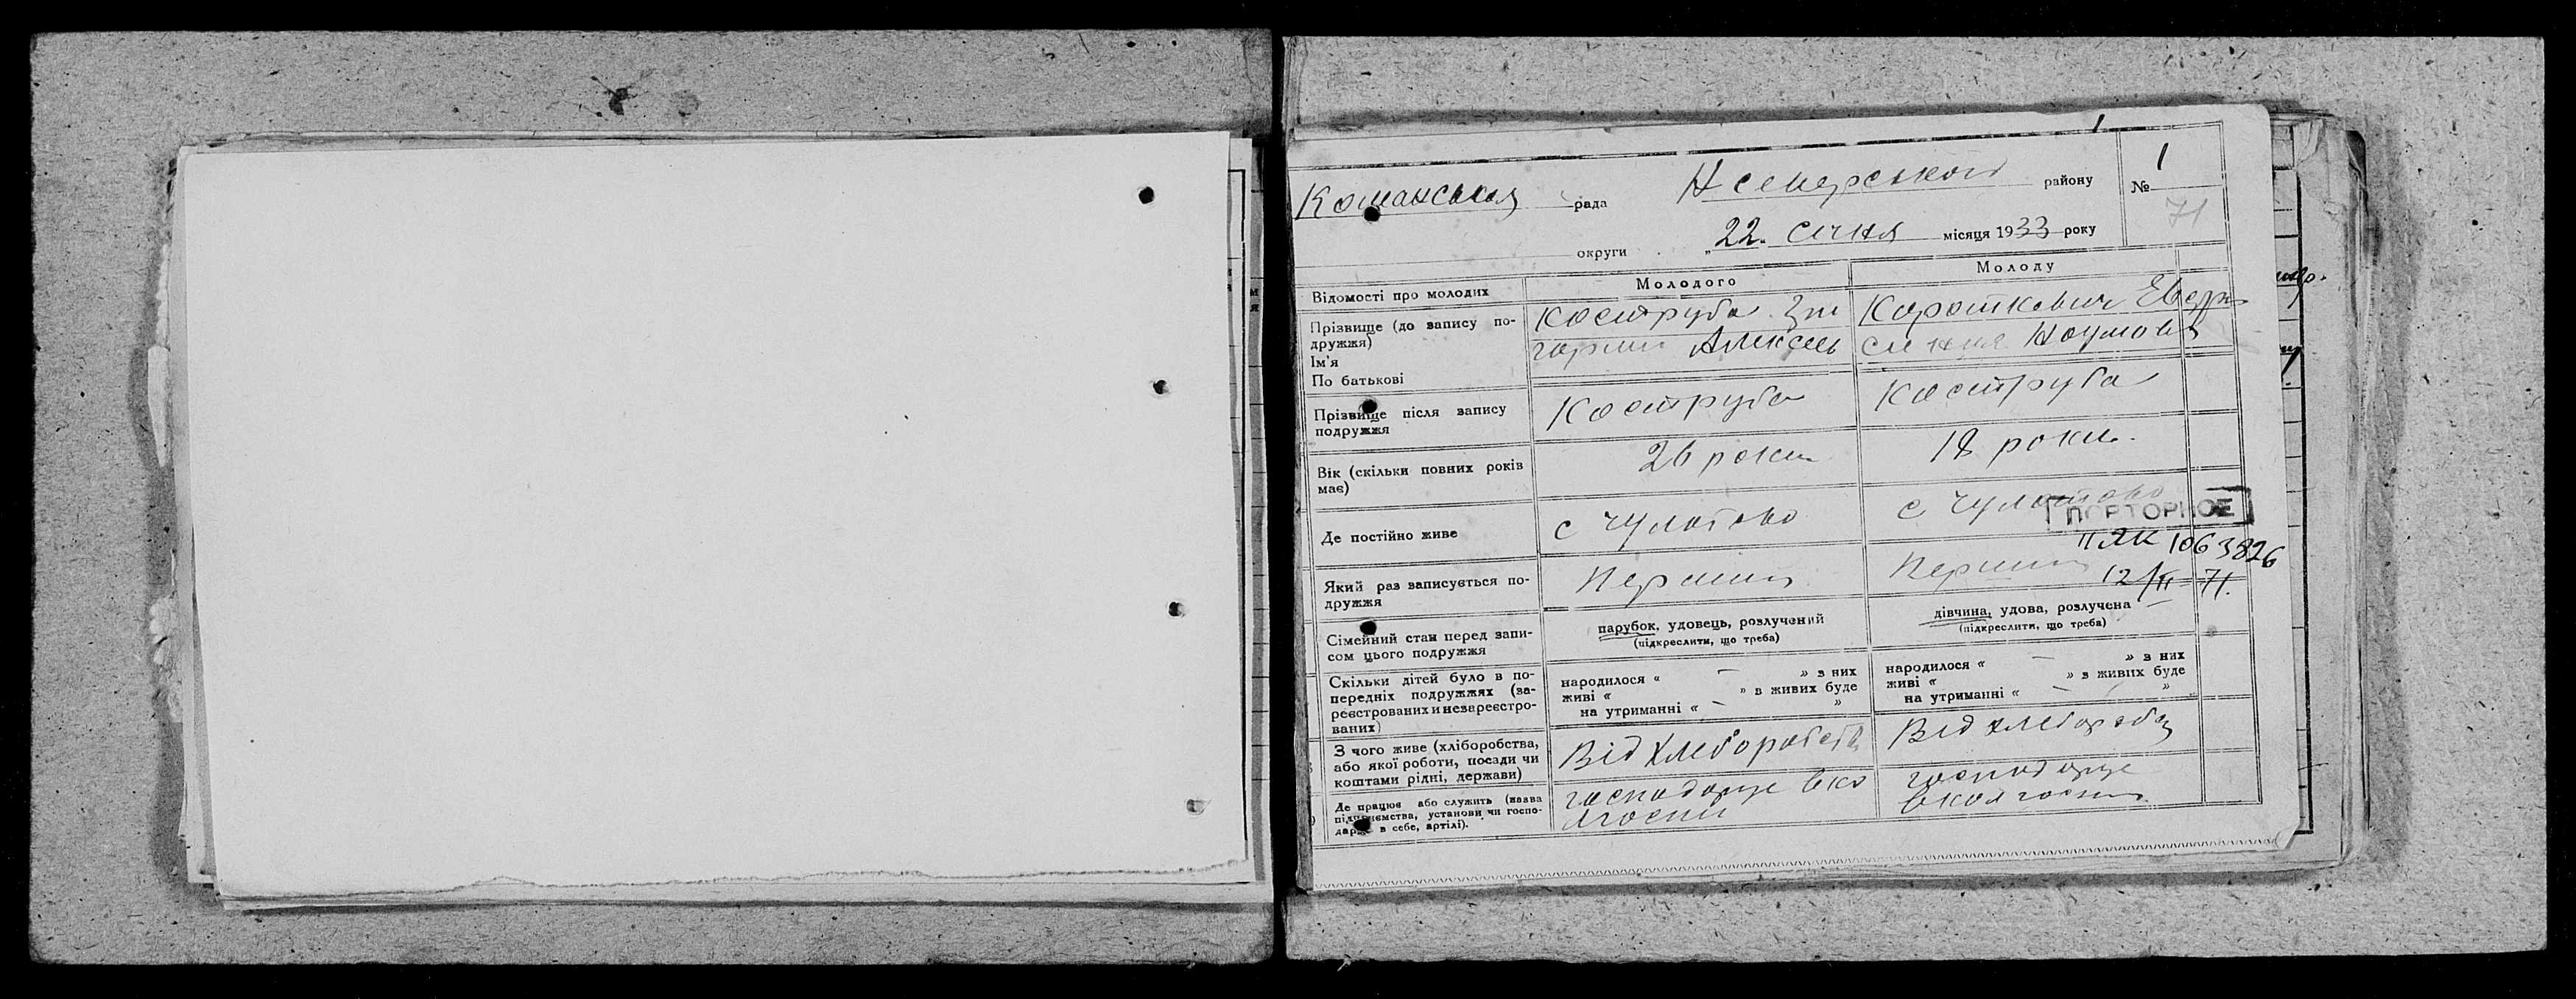 1
Команська рада Н Сіверського району № 1
71
округи „ 22. січня місяця 1933 року
Відомості про молодих Молодого Молоду
Прізвище (до запису подружжя) Коструба Карошкевич
Ім'я Алексеь Наумов
По батькові
Прізвище після запису подружжя Коструба Коструба
Вік (скільки повних років має) 26 роки 18 роки.
Де постійно живе с Чулатово с Чулатово
ПОВТОРНОЕ
II ЯК 1063826
12/II-71.
Який раз записується подружжя Перший Перший
Сімейний стан перед записом цього подружжя парубок, удовець, розлучений дівчина, удова, розлучена
(підкреслити, що треба) (підкреслити, що треба)
Скільки дітей було в попередніх подружжях (зареєстрованих и незареєстрованих)
народилося « — » з них народилося « — » з них
живі « » в живих буде живі « » з живих буде
на утриманні « — » на утриманні « — »
З чого живе (хліборобства, або якої роботи, посади чи коштами рідні, держави) Від хлеборобств Від хлебороб
Де працює або служить (назва підприємства, установи чи господарює в себе, артілі). господарує вко господарує
лгоспи вколгоспи